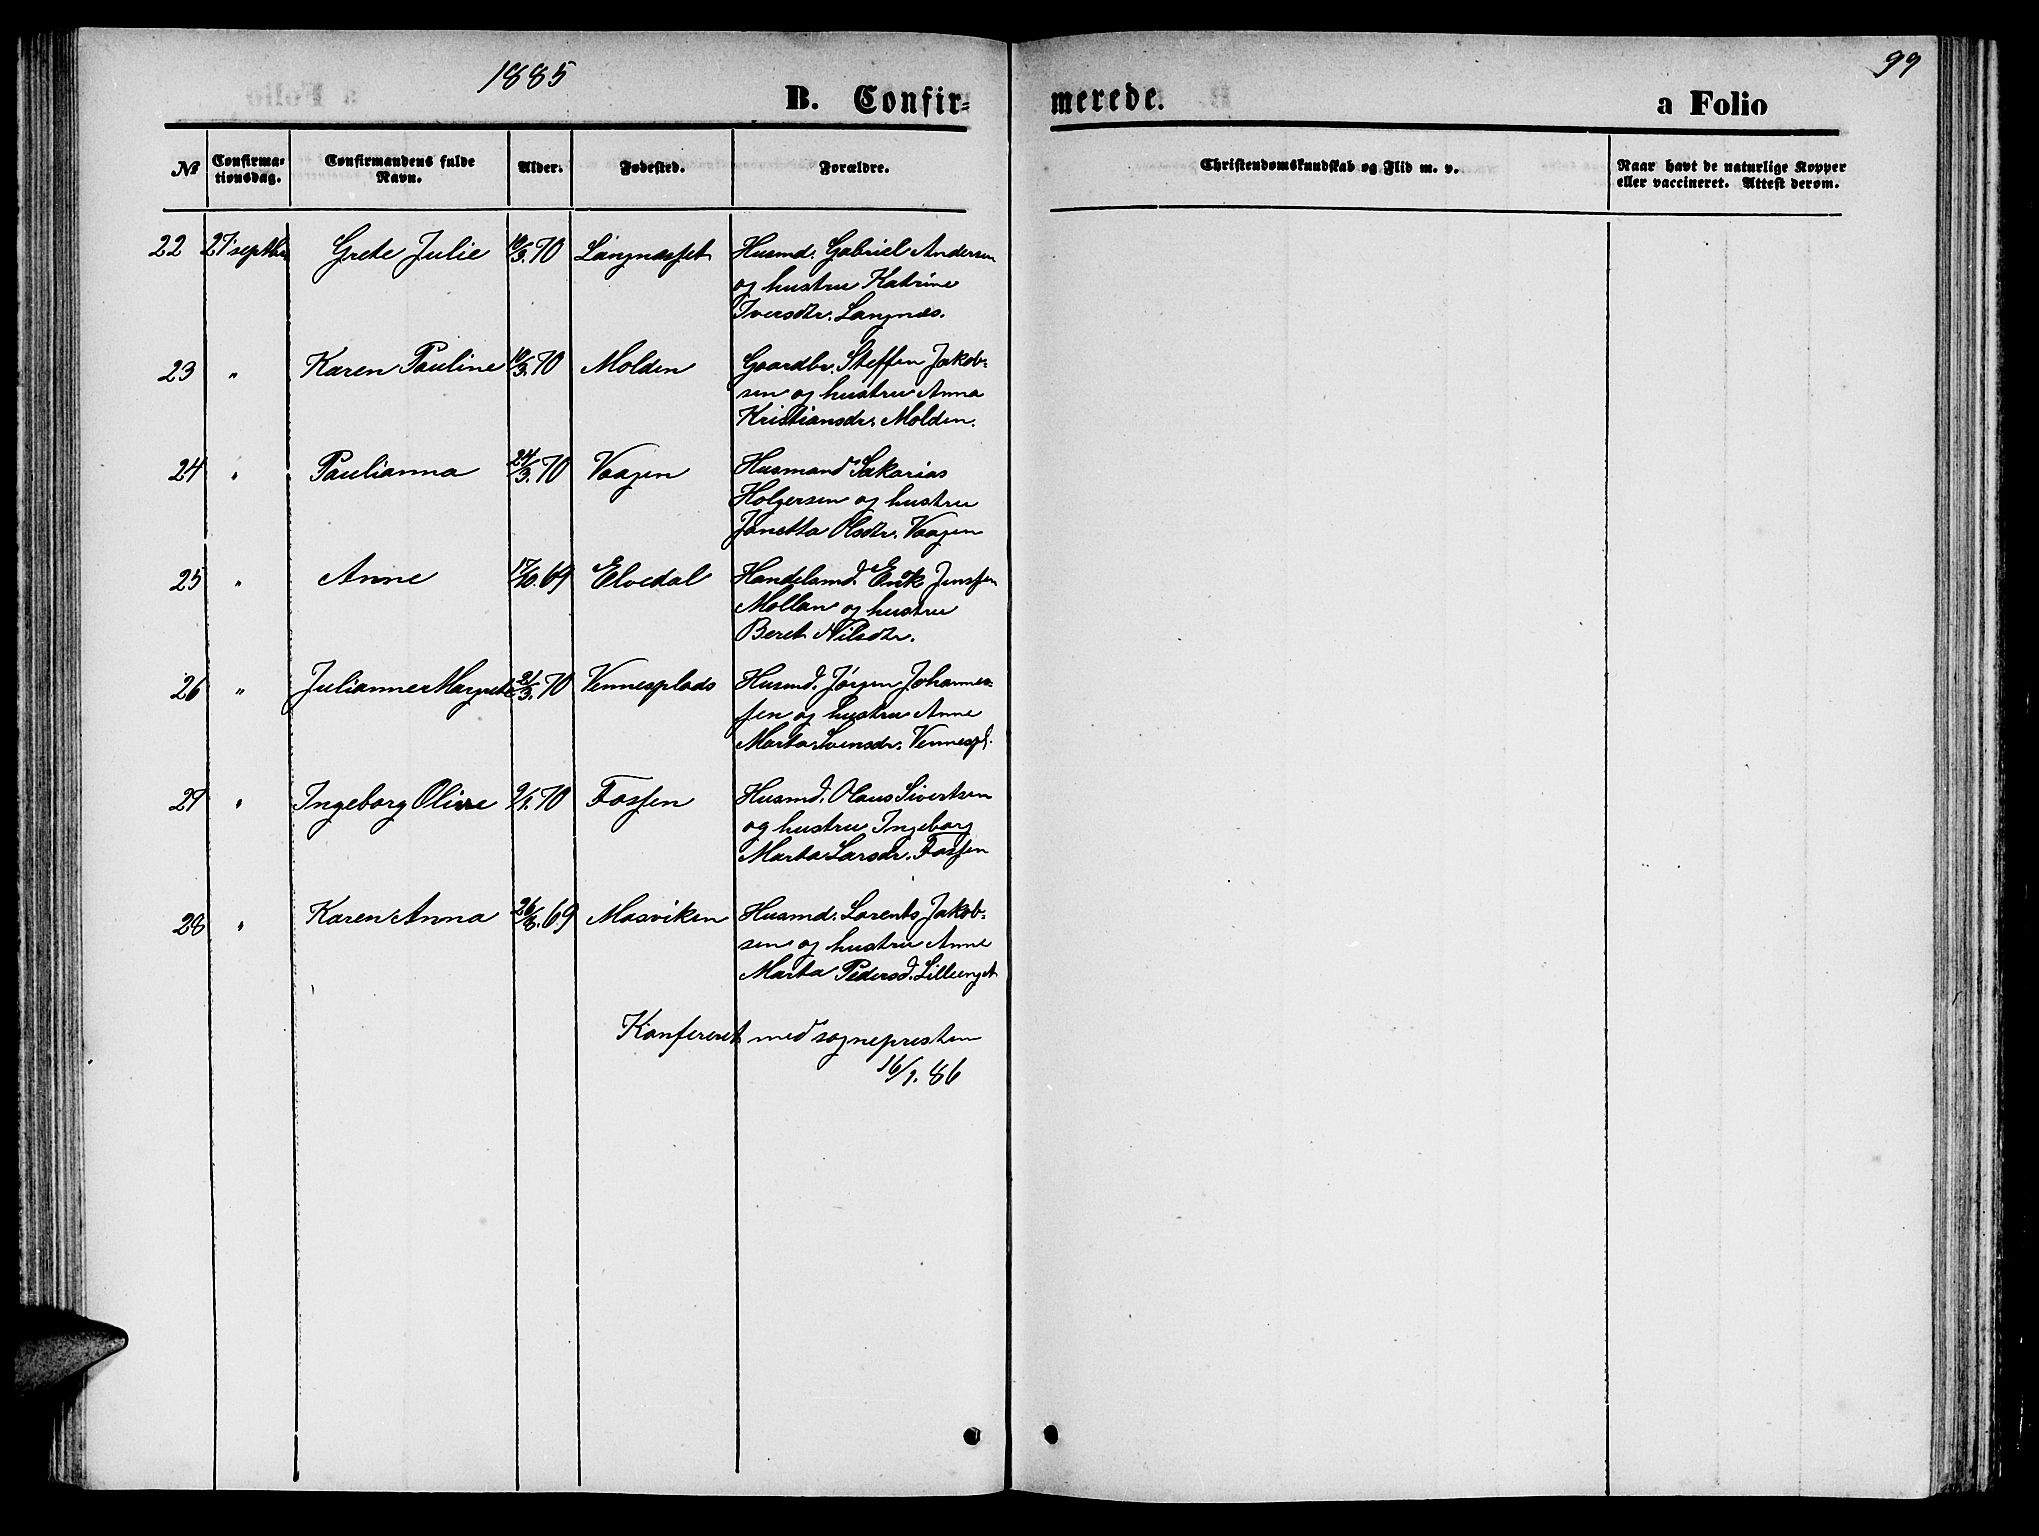 1885
99
B. Confir=
merede.
a Folio
№
Confirma-
tionsdag.
Confirmandens fulde
Navn.
Alder.
Fødested.
Forældre.
Christendomskundskab og Flid m. v.
Naar havt de naturlige Kopper
eller vaccineret. Attest derom.
22 27 septbr Grete Julie 10/3.70 Langnesset Husmd. Gabriel Andersen
og hustru Katrine
Iversdtr. Langnes.
23 " Karen Pauline 10/3.70 Molden Gaardbr. Steffen Jakob-
sen og hustru Anna
Kristiansdr. Molden.
24 " Paulianna 24/3.70 Vaagen Husmand Sakarias
Holgersen og hustru
Janetta Olsdtr. Vaagen
25 " Anne 17/10.69 Elvedal Handelsmd. Erik Jenssen
Mollan og hustru
Beret Nilsdtr.
26 " Julianne Margrete 21/3.70 Vennesplads Husmd. Jørgen Johannes-
sen og hustru Anne
Marta Svensdr. Vennespl.
27 " Ingeborg Oline 9/1.70 Fossen Husmd. Olaus Sivertsen
og hustru Ingeborg
Marta Larsdr. Fossen
28 " Karen Anna 26/8.69 Masviken Husmd. Lorents Jakob-
sen og hustru Anne
Marta Pedersd. Lilleenget
Konfereret med sognepresten
16/1.86